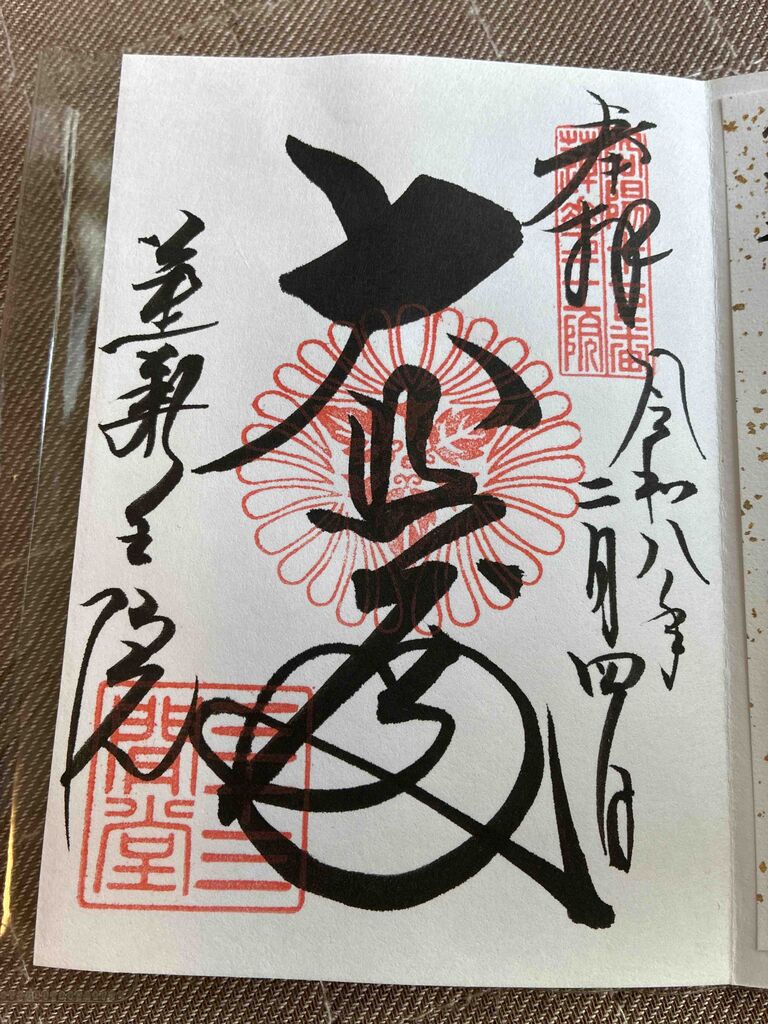 奉拝
蓮華王院
令和八年
二月四日
大悲閣
蓮華王院
三十三
間堂